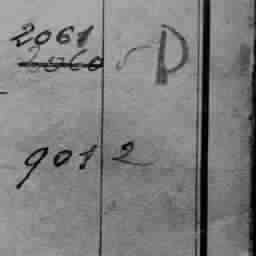 2061
2060 D
9012